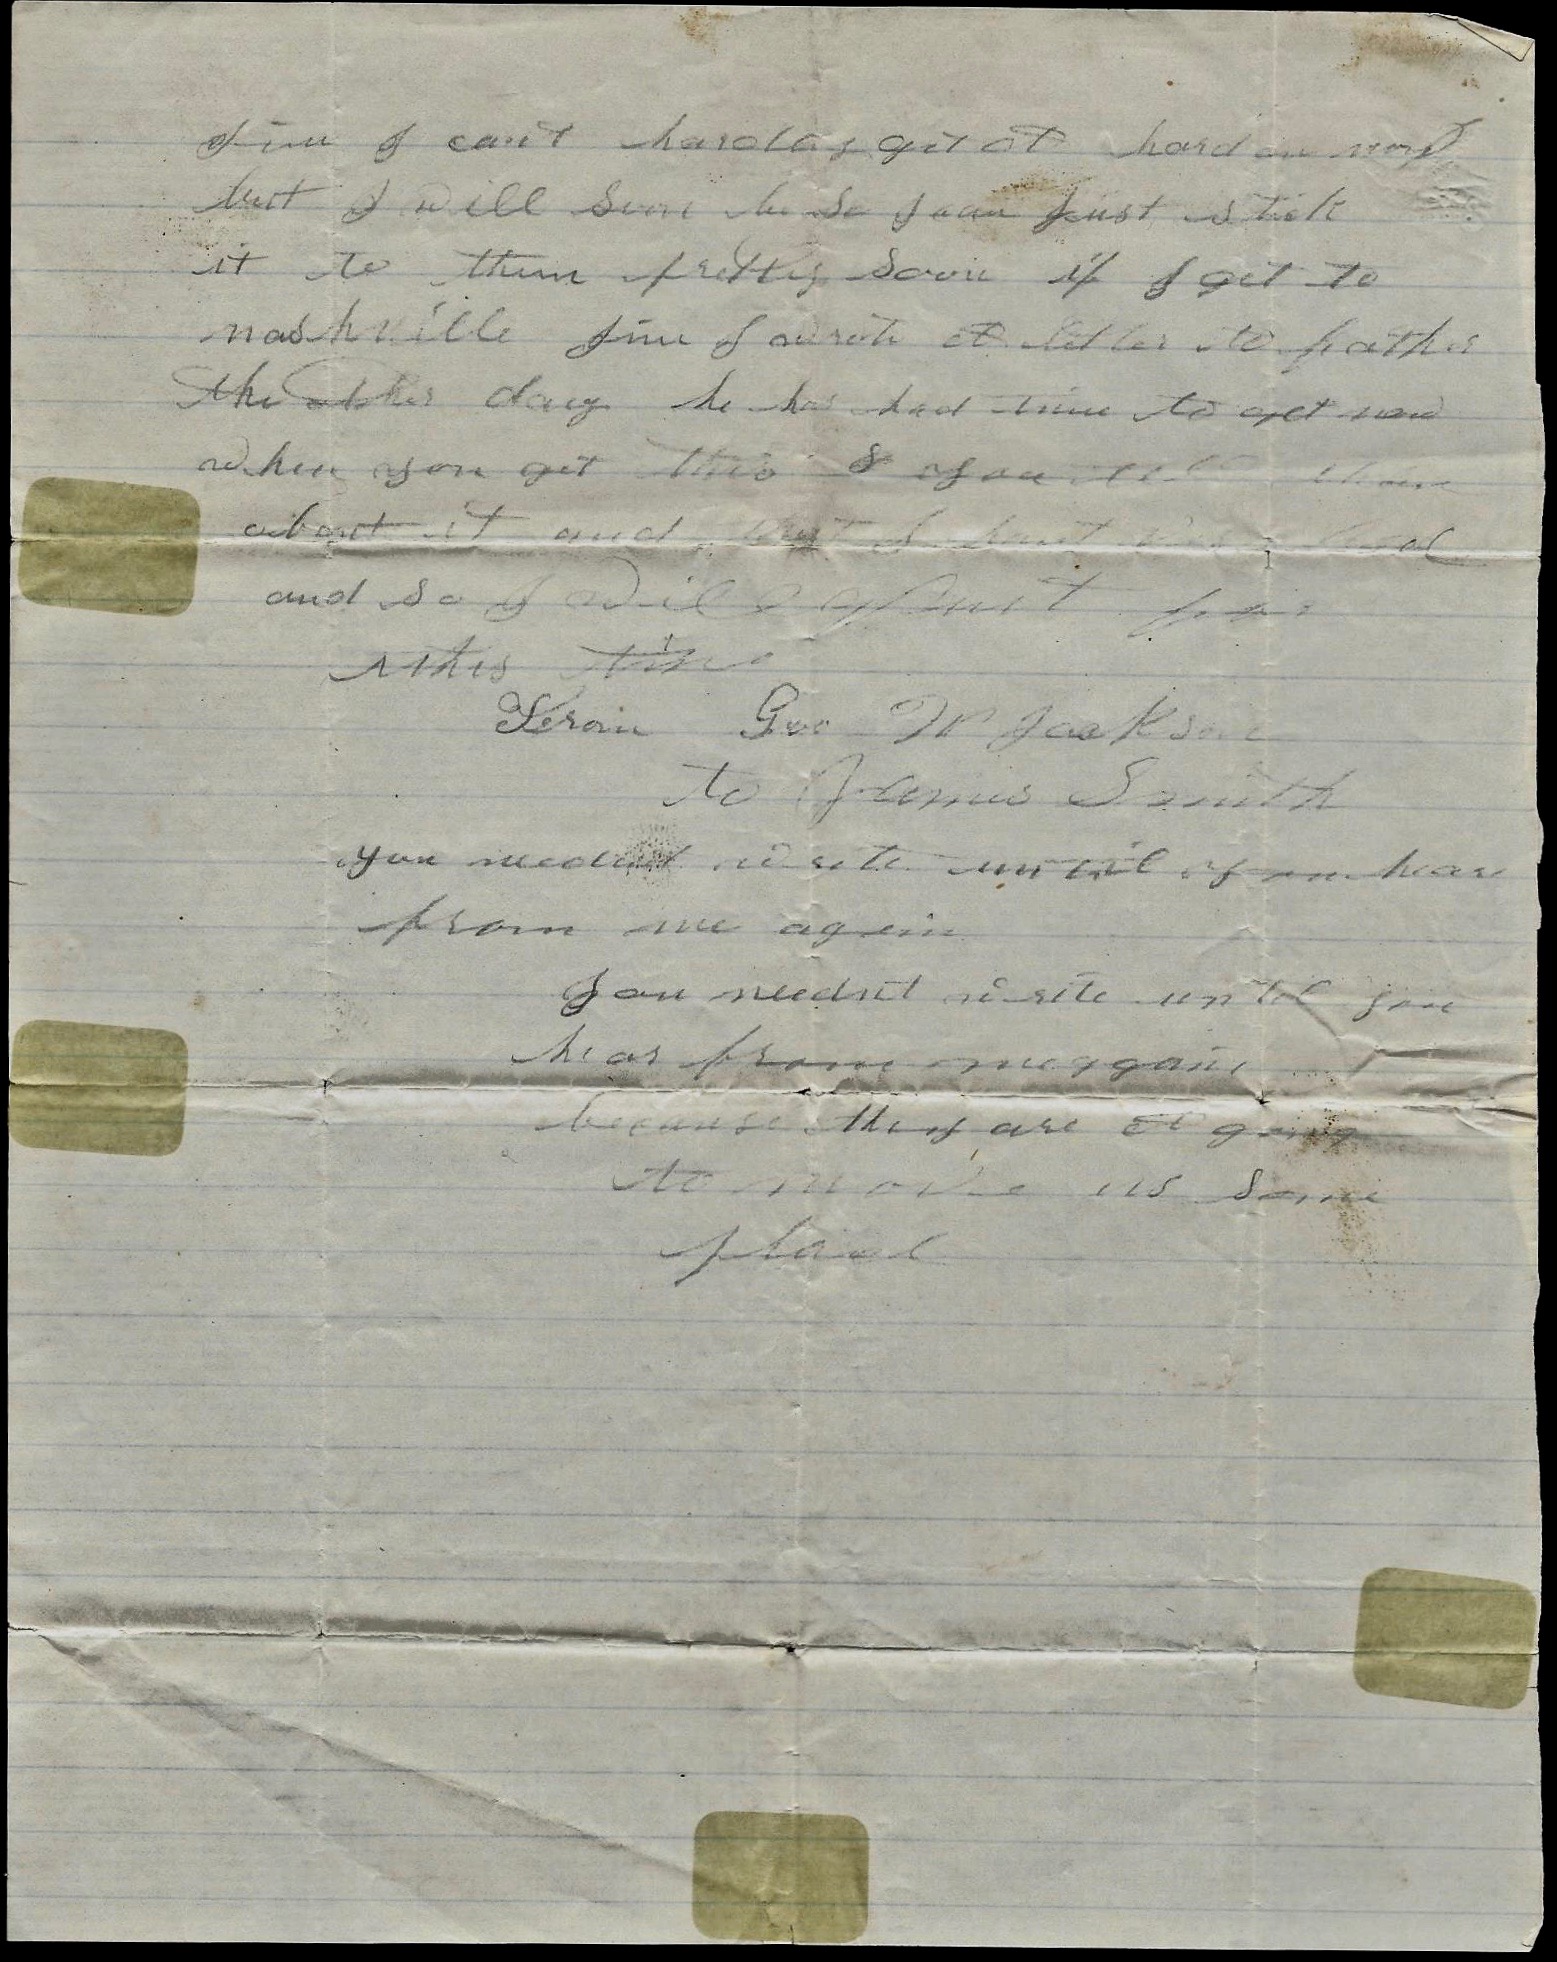 Jim I cant harday git at hard on now
but I will soon be so I can just stick
it to them pretty soon if I git to
nashville Jim I wrote a letter to father
the other day he has had time to get now
when you git this & you tell
about it and but I haint
and so I will quit for
this time
From Geo W Jackson
to James Smith
you neednt write until you hear
from me again
you neednt write until you
hear from me again
because they are a going
to move us some
place